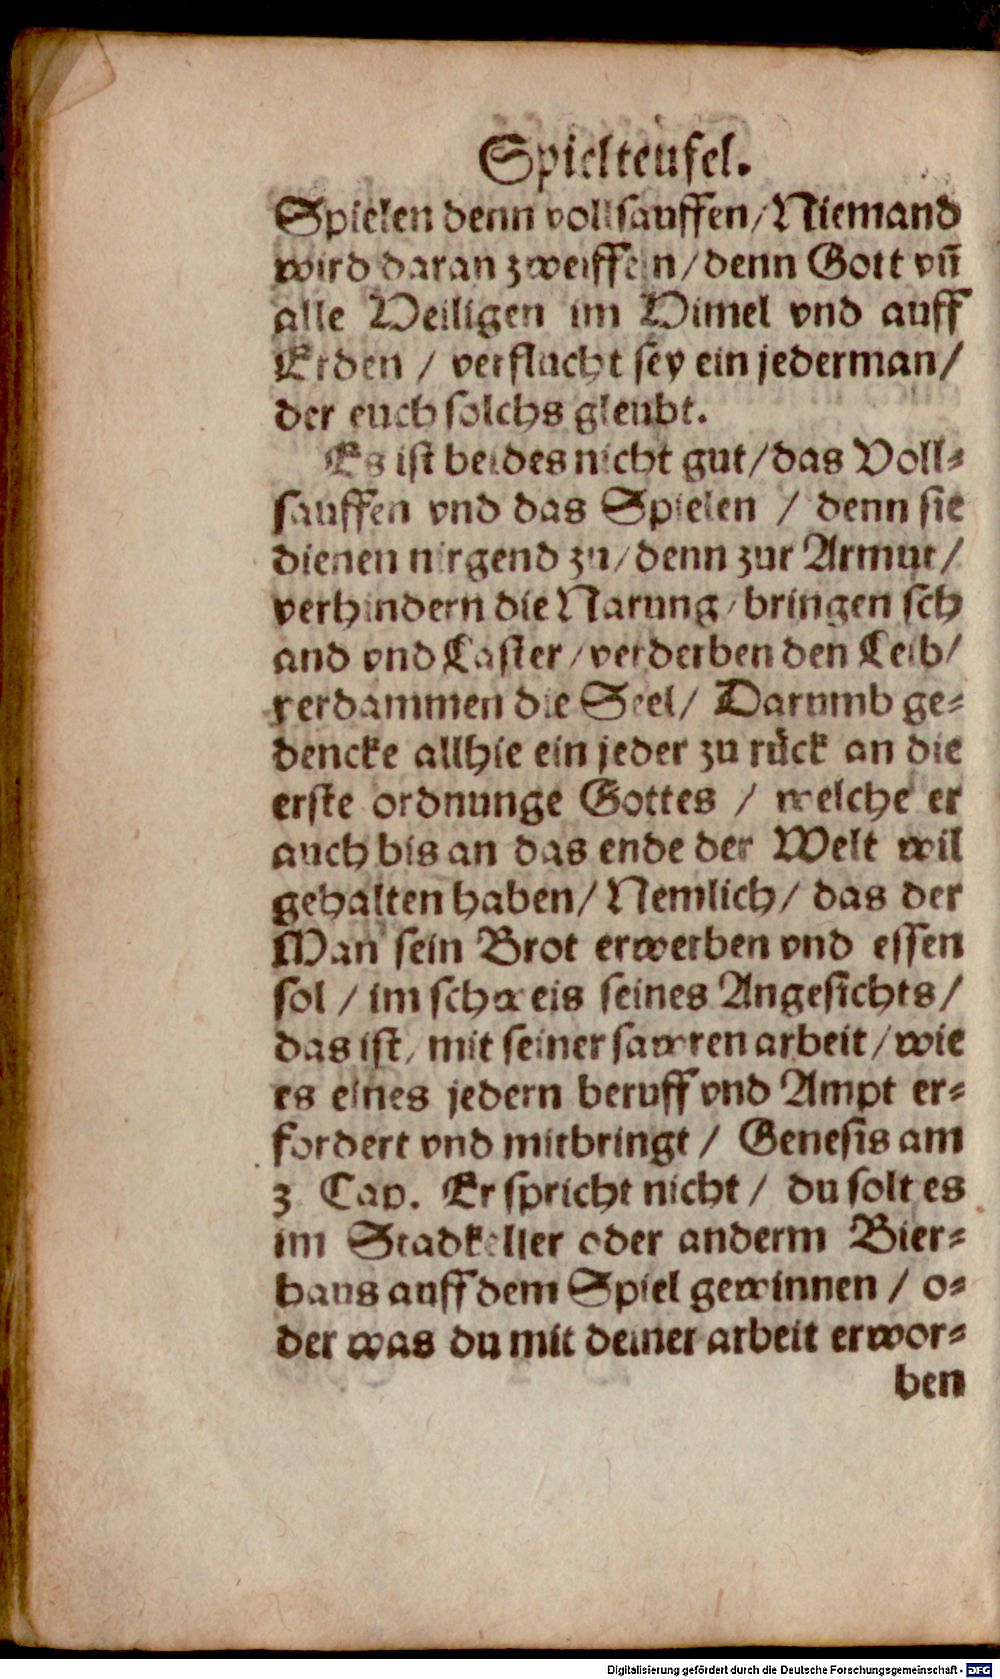 Spielteufel.
Spielen denn vollsauffen/Niemand
wird daran zweiffeln/denn Gott vñ
alle Heiligen im Himel vnd auff
Erden / verflucht sey ein jederman/
der euch solchs gleubt.
Es ist beides nicht gut/das Voll-
sauffen vnd das Spielen / denn sie
dienen nirgend zu/denn zur Armut/
verhindern die Narung/bringen sch
and vnd Laster/verderben den Leib/
verdammen die Seel/ Darumb ge-
dencke allhie ein jeder zu rück an die
erste ordnunge Gottes / welche er
auch bis an das ende der Welt wil
gehalten haben/Nemlich/ das der
Man sein Brot erwerben vnd essen
sol / im schweis seines Angesichts/
das ist/mit seiner sawren arbeit/wie
es eines jedern beruff vnd Ampt er-
fordert vnd mitbringt / Genesis am
3 Cap. Er spricht nicht / du solt es
im Stadkeller oder anderm Bier-
haus auff dem Spiel gewinnen / o-
der was du mit deiner arbeit erwor-
ben
Digitalisierung gefördert durch die Deutsche Forschungsgemeinschaft - DFG